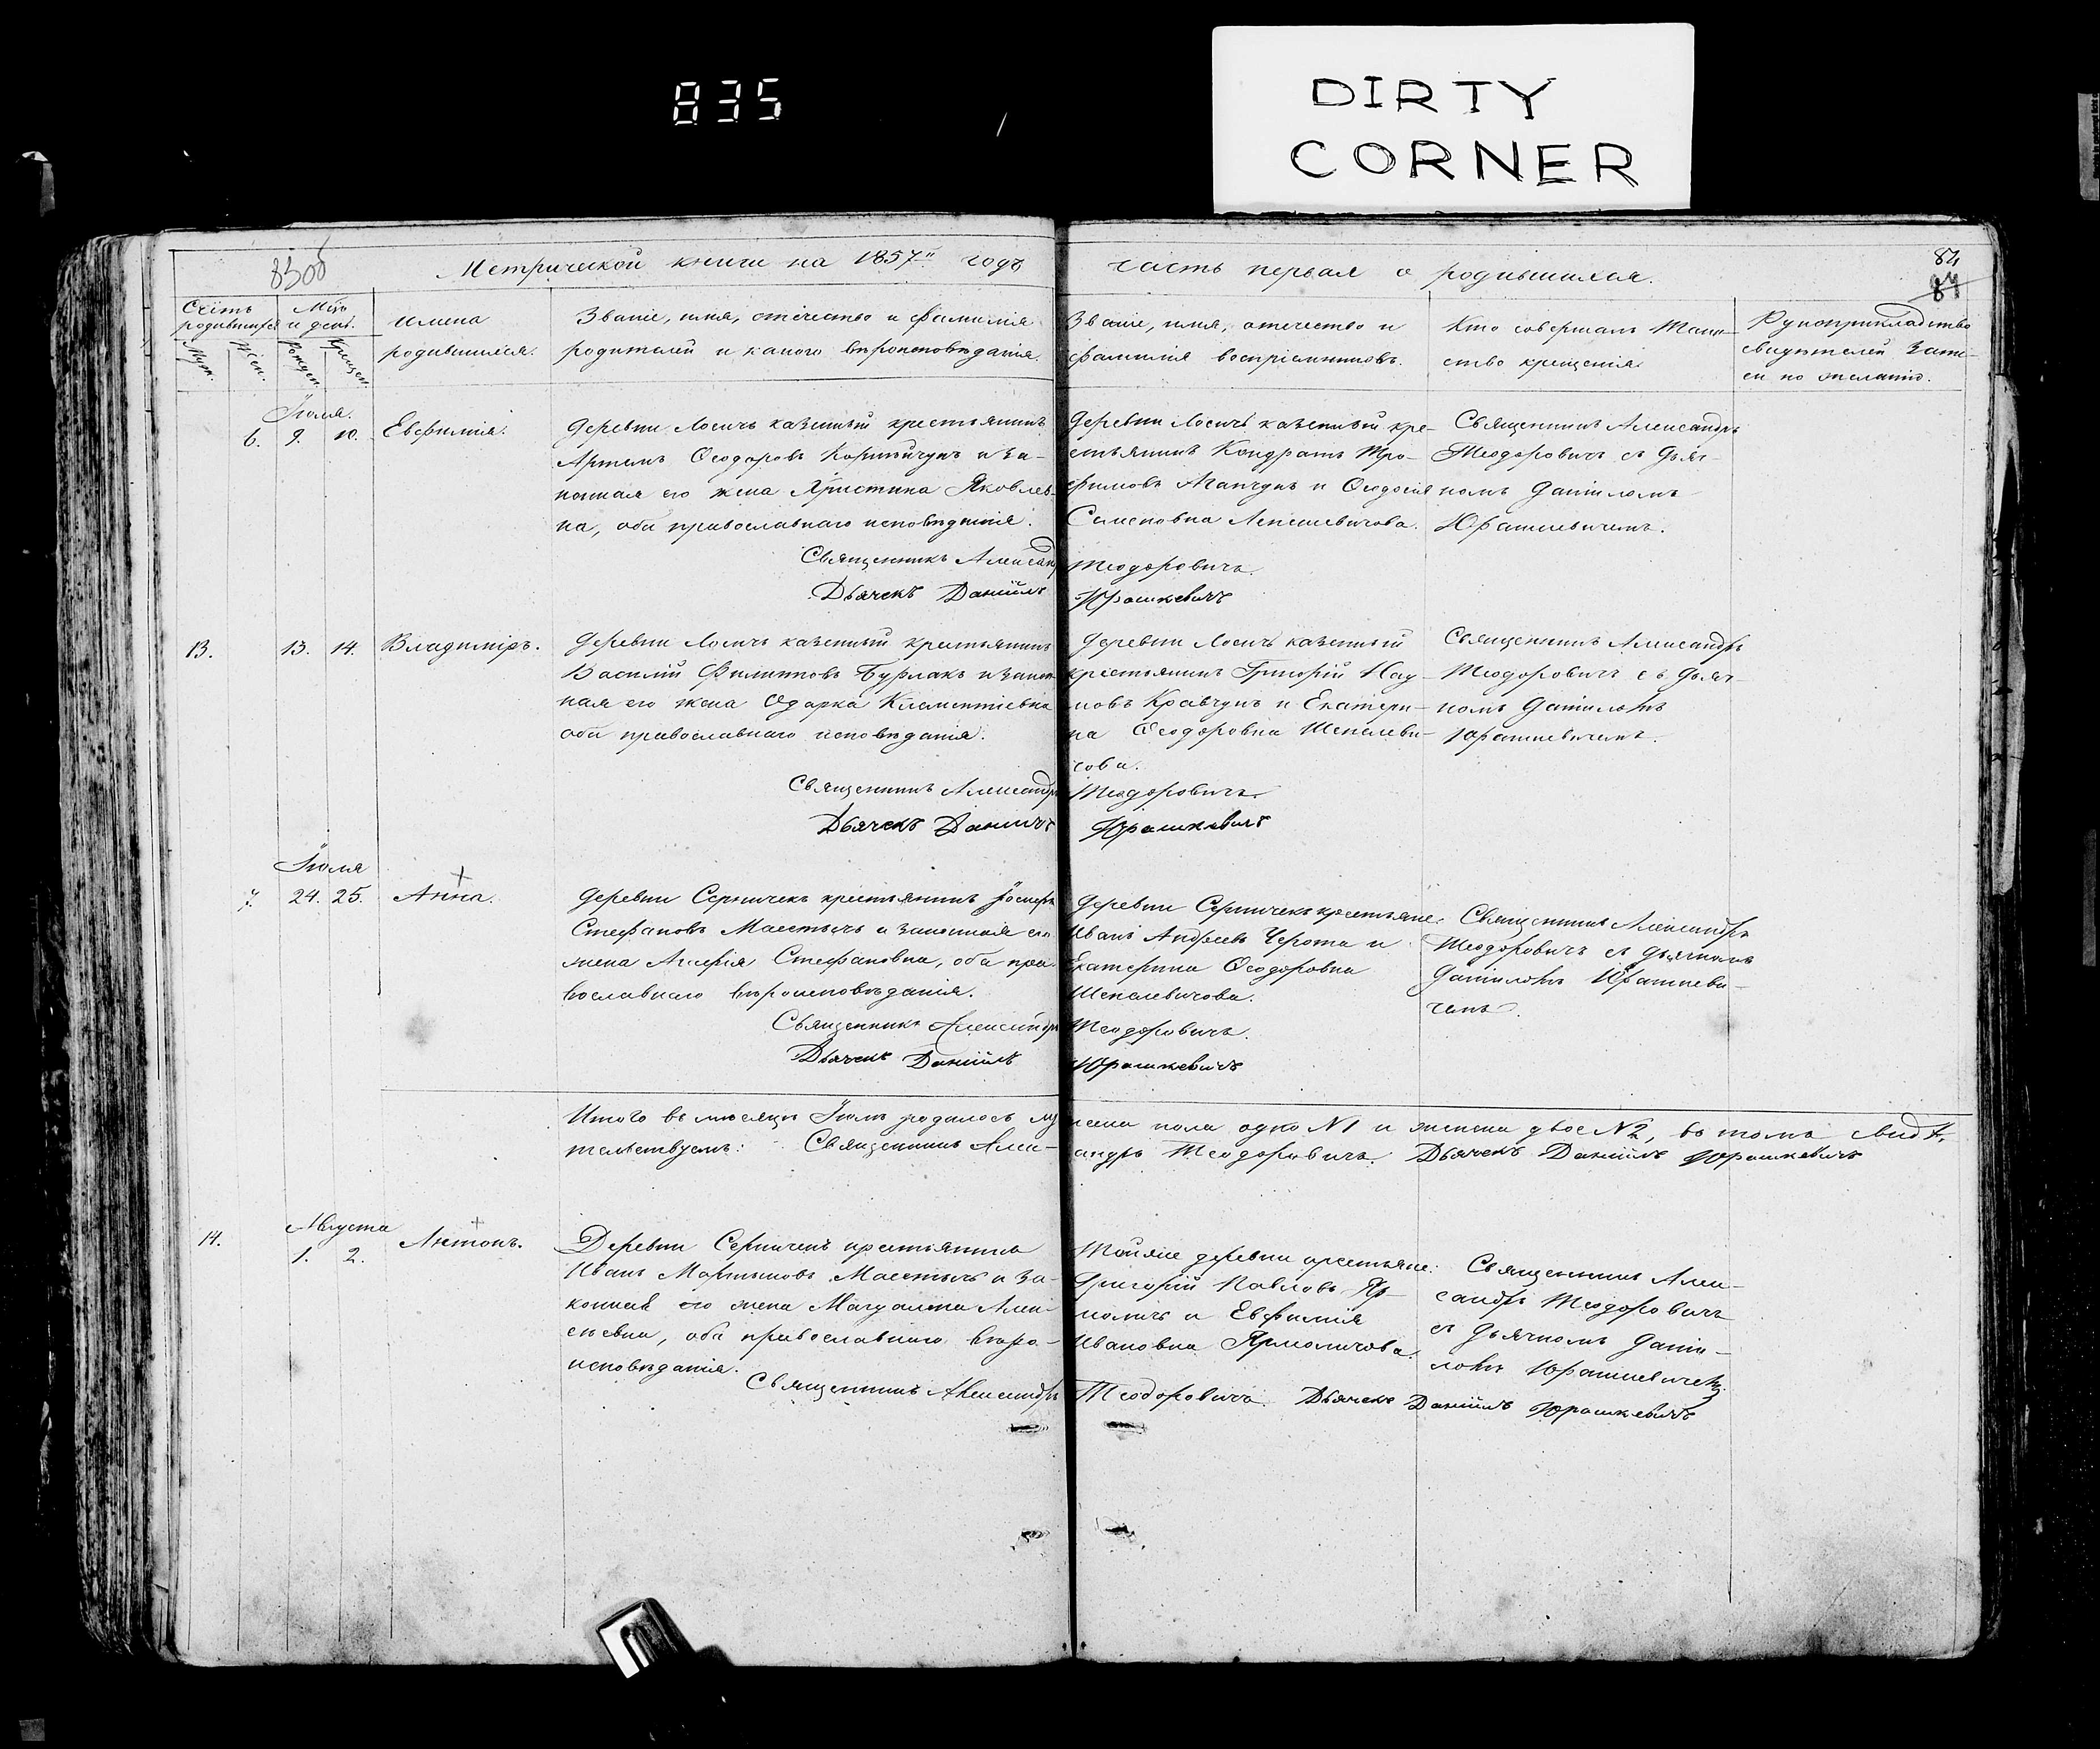 835
DIRTY
CORNER
83об
Метрической книги на 1857й годъ
часть первая о родившихся.
84
84
Счетъ
родившихся
Муж.
Жен.
Мѣс.
и день.
Рожден.
Крещен.
имена
родившихся.
Званіе, имя, отчество и фамилія
родителей и какого вѣроисповѣданія.
Званіе, имя, отечество и
фамилія воспріемниковъ.
Кто совершалъ Таин-
ство крещенія
Рукоприкладство
свидѣтелей запи-
си по желанію.
Іюля.
6. 9. 10. Евфимія.
Деревни Лосичъ казенный крестьянинъ
Артемъ Ѳеодоровъ и за-
конная его жена Христина Яковлев-
на, оба православнаго исповѣданія.
Священникъ Александръ
Дьячекъ Даніилъ
Деревни Лосичъ казенный кре-
стьянинъ Кондратъ Тро-
фимовъ и Ѳеодосія
Семеновна
Теодоровичъ.
Юрашкевичъ
Священникъ Александръ
Теодоровичъ съ дьяч-
комъ Даніиломъ
Юрашкевичемъ.
13. 13. 14. Владиміръ.
Деревни Лосичъ казенный крестьянинъ
Василій Филипповъ Бурлакъ и закон-
ная его жена Одарка Климентіевна
оба православнаго исповѣданія.
Священникъ Александръ
Дьячекъ Даніилъ
Деревни Лосичъ казенный
крестьянинъ Григорій Нау-
мовъ Кравчукъ и Екатери-
на Ѳеодоровна Шепелеви-
чова.
Теодоровичъ.
Юрашкевичъ
Священникъ Александръ
Теодоровичъ съ дьяч-
комъ Даніиломъ
Юрашкевичемъ.
Іюля
7. 24. 25. Анна.
Деревни Серничекъ крестьянинъ Іосифъ
Стефановъ и законная его
жена Стефановна, оба пра-
вославнаго вѣроисповѣданія.
Священникъ Александръ
Дьячекъ Даніилъ
Деревни Серничекъ крестьяне:
Иванъ Андреевъ Черота и
Екатерина Ѳеодоровна
Шепелевичова.
Теодоровичъ.
Юрашкевичъ
Священникъ Александръ
Теодоровичъ съ дьячкомъ
Даніиломъ Юрашкеви-
чемъ.
Итого въ мѣсяцѣ Іюлѣ родилось муж
ческа пола одно №1 и женска двое №2, въ томъ свидѣ
тельствуемъ: Священникъ Алек-
сандръ Теодоровичъ. Дьячекъ Даніилъ Юрашкевичъ
Августа
14. 1. 2. Антонъ.
Деревни Серничекъ крестьянинъ
Иванъ Мартыновъ и за-
конная его жена Магдалина Алек-
сѣевна, оба православнаго вѣро-
исповѣданія.
Священникъ Александръ
Тойже деревни крестьяне:
Григорій Павловъ Яр-
моличъ и Евфимія
Ивановна Ярмоличова.
Теодоровичъ. Дьячекъ Даніилъ Юрашкевичъ
Священникъ Алек-
сандръ Теодоровичъ
съ дьячкомъ Дані-
ломъ Юрашкевичемъ.